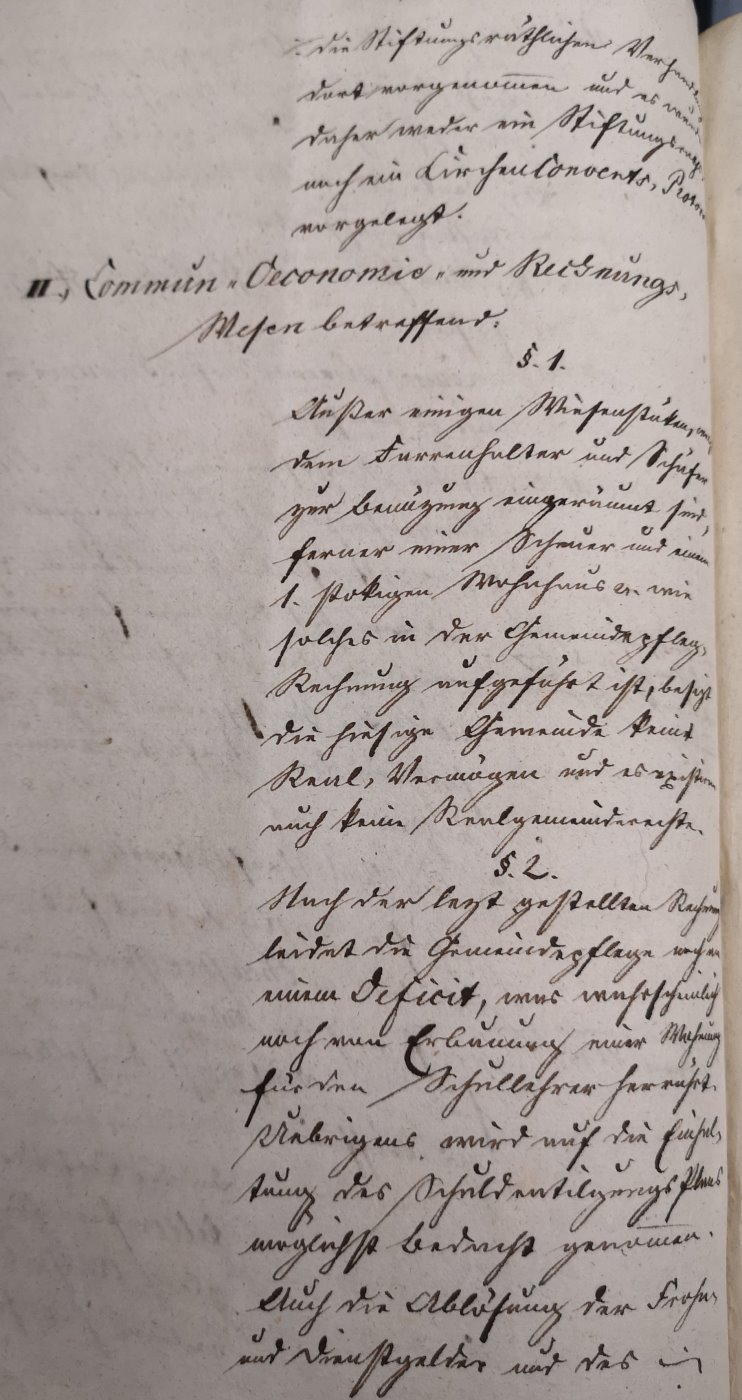 die Stiftungsräthlichen
dort vorgenommen und es
daher weder ein Stiftungs
noch ein KirchenConvents,
vorgelegt.
II., Commun-Oeconomie- und Rechnungs,
Wesen betreffend.
§. 1.
Außer einigen Wiesenstüken,
dem Farrenhalter und Schäfer
zur Benüzung eingeräumt sind,
ferner einer Scheuer und einem
1. stokigen Wohnhaus wie
solches in der Gemeindepfleg,
Rechnung aufgeführt ist, besizt
die hiesige Gemeinde kein
Real, Vermögen und es
auch keine Realgemeinderechte.
§. 2.
Nach der lezt gestellten Rechnung
leidet die Gemeindepflege noch an
einem Deficit, was wahrscheinlich
noch von Erbauung einer Wohnung
für den Schullehrer herrührt.
Uebrigens wird auf die Einhal,
tung des Schuldentilgungs Plans
möglichst Bedacht genommen.
Auch die Ablösung der Frohn,
und Dienstgelder und des